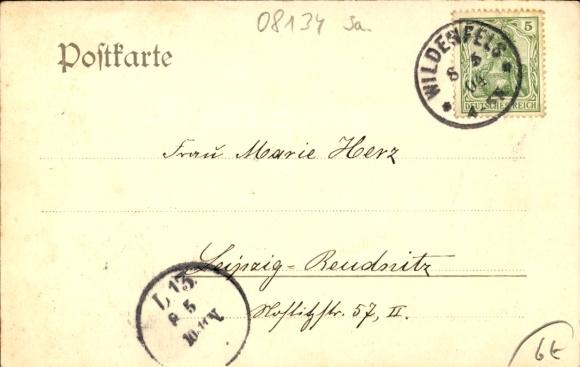 08134 Sa.
Postkarte
5
DEUTSCHES REICH
WILDENFELS
8 5
04
Frau Marie Herz
Leipzig-Reudnitz
Kostitzstr. 57, II.
L 13
8 5
10
V
6t